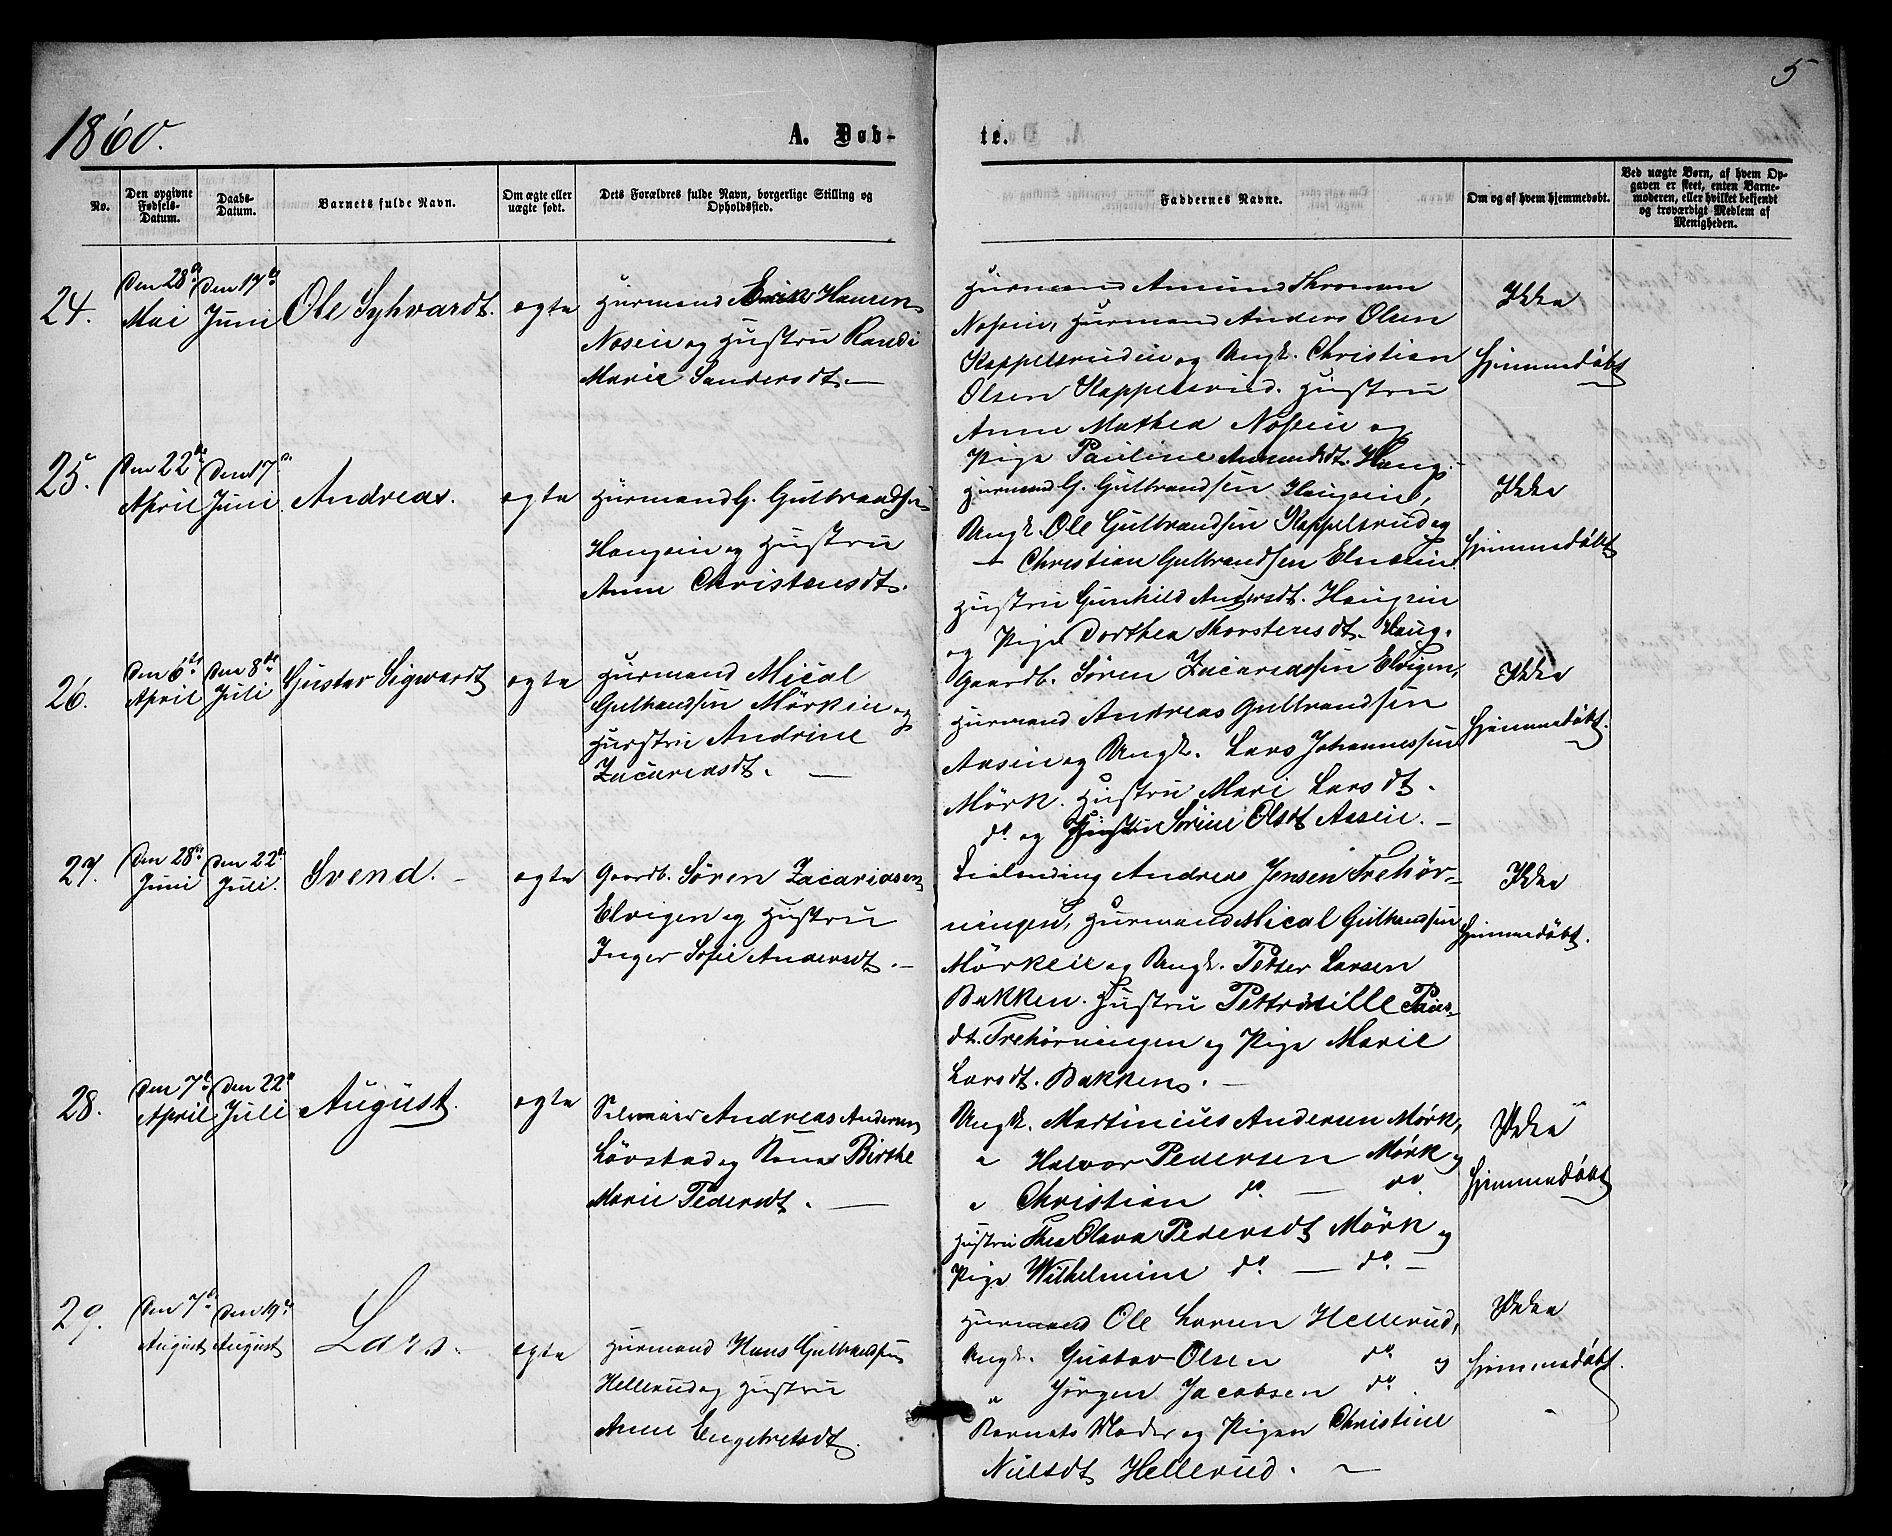 5
1860.
A. Døb-
te.
No.
Den opgivne Fødsels-Datum.
Daabs-Datum.
Barnets fulde Navn.
Om ægte eller uægte født.
Dets Forældres fulde Navn, borgerlige Stilling og Opholdssted.
Faddernes Navne.
Om og af hvem hjemmedøbt.
Ved uægte Børn, af hvem Opgaven er skeet, enten Barnemoderen, eller hvilket bekjendt og troværdigt Medlem af Menigheden.
24.
Den 28de Mai
Den 17de Juni
Ole Syhvardt.
ægte
Huusmand Erik Hansen
Noseie og Hustru Randi
Marie Sandersdt.
Huusmand Amund Thronsen
Noseie, Huusmand Anders Olsen
Kappelsrudeie og Ungk. Christian
Olsen Kappelsrud. Hustru
Anne Mathea Noseie og
Pige Pauline Amundsdt. Haug.
Ikke
hjemmedøbt
25.
Den 22de April
Den 17de Juni
Andreas.
ægte
Huusmand G. Gulbrandsen
Haugeie og Hustru
Anne Christensdt.
Huusmand G. Gulbrandsen Haugeie,
Ungk. Ole Gulbrandsen Kappelsrud og
— Christian Gulbrandsen Elvseie
Hustru Gunhild Andersdt. Haugeie
og Pige Dorthea Thorstensdt. Haug.
Ikke
hjemmedøbt
26.
Den 6te April
Den 8de Juli
Gustav Sigvardt
ægte
Huusmand Mical
Gulbrandsen Mörkeie og
Hustru Andrine
Zacariasdt. —
Gaardb. Sören Zacariassen Elvigen,
Huusmand Andreas Gulbrandsen
Aaseie og Ungk. Lars Johannessen
Mörk. Hustru Mari Larsdt.
do og Hustru Sörine Olsdt Aaseie. —
Ikke
hjemmedøbt.
27.
Den 28de Juni
Den 22de Juli.
Svend. —
ægte
Gaardb. Sören Zacariasen
Elvigen og Hustru
Inger Sofie Andersdt. —
Leilending Andreas Jensen Trehör-
ningen, Huusmand Mical Gulbrandsen
Mörkeie og Ungk. Petter Larsen
Bakken. Hustru Petternille
dt. Trehörningen og Pige Marie
Larsdt. Bakken. —
Ikke
hjemmedøbt.
28.
Den 7de April
Den 22de Juli
August.
ægte
Andreas Andersen
Lövstad og Kone Birthe
Marie Pedersdt. —
Ungk. Martinius Andersen Mörk,
" Halvor Pedersen Mörk og
" Christian do. — do.
Hustru Thea Olava Pedersdt Mörk og
Pige Wilhelmine do. — do. —
Ikke
hjemmedøbt
29.
Den 7de August
Den 19de August
Lars.
ægte
Huusmand Hans Gulbrandsen
Hellerud og Hustru
Anne Engebretsdt.
Huusmand Ole Larsen Hellerud,
Ungk. Gustav Olsen do og
" Jörgen Jacobsen do.
Barnets Moder og Pigen Christine
Nielsdt Hellerud. —
Ikke
hjemmedøbt.